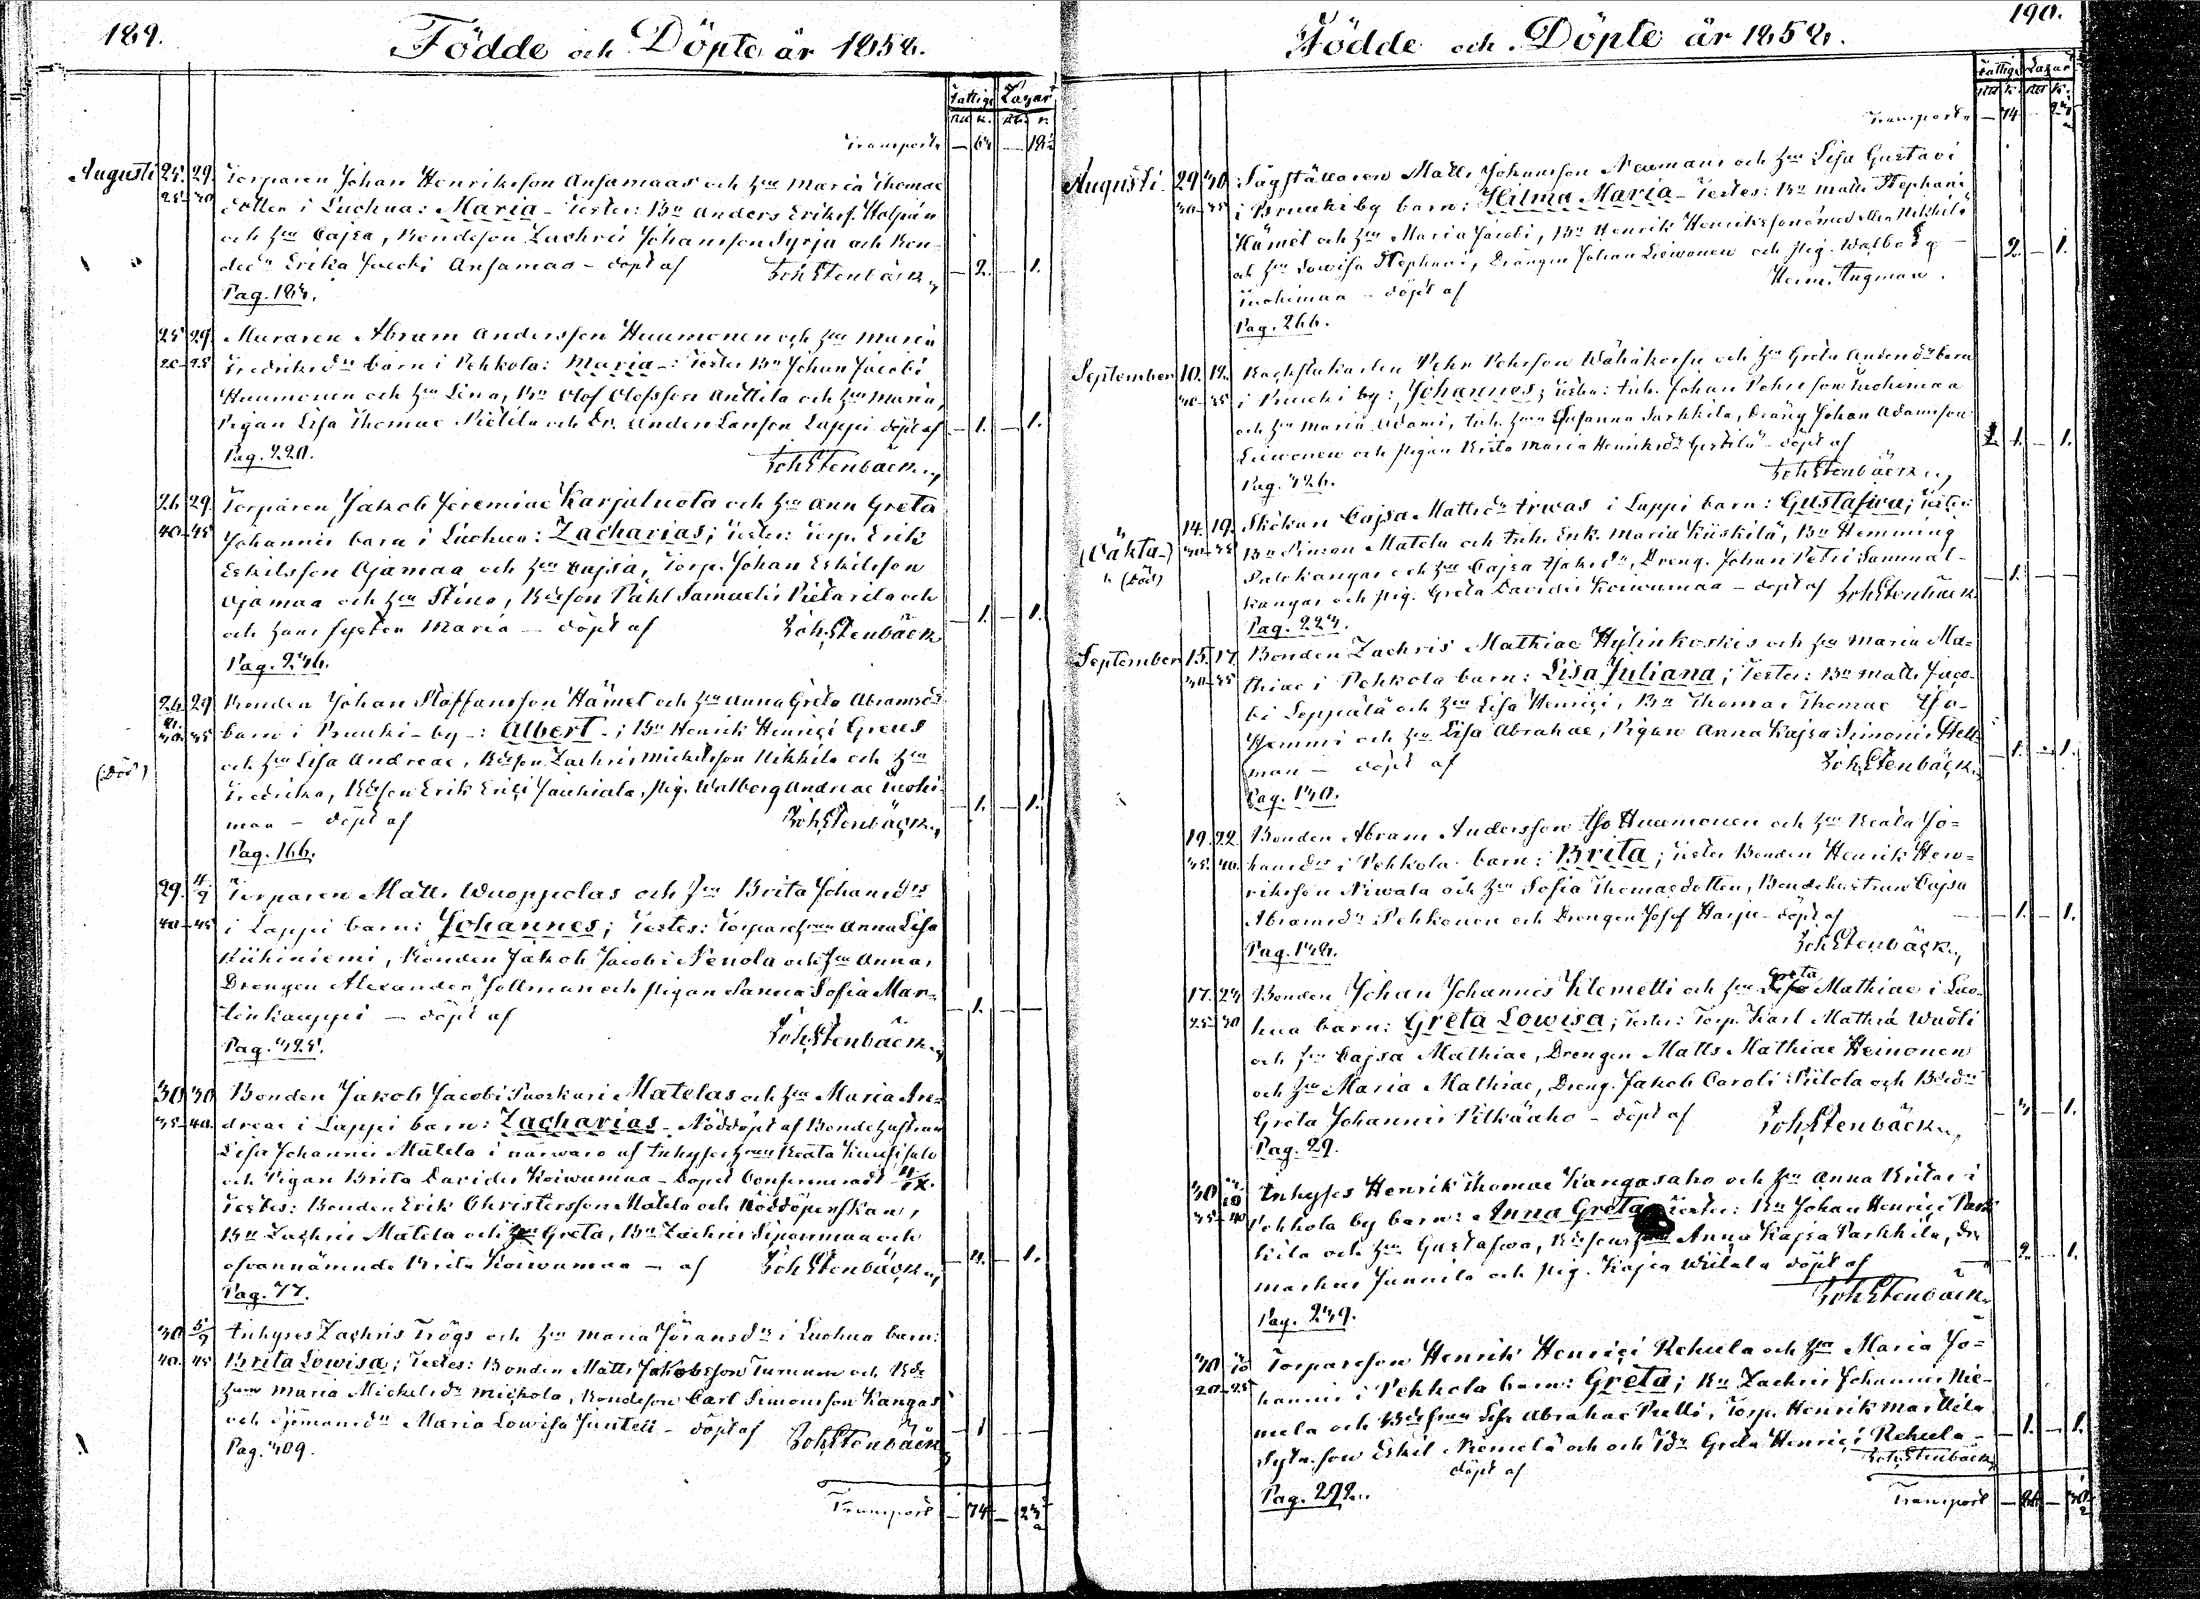 189.
Födde och Döpte år 1858.
Fattige Lazar.
Transport 64 18½
Augusti 25. 29. Torparen Johan Henriksson Ansamaas och hu Maria Thomae
25-30 dotter i Luohua: Maria - Testes: Bn Anders Eriksf.
och hu Cajsa, Bondeson Zachris Johansson Syrjä och Bon-
ded. Erika Jacobi Ansamaa - döpt af JohStenbäck - 2. - 1.
Pag. 184.
25 29 Muraren Abram Andersson Huumonen och hu Maria
20-25 Fredriksdr barn i Pehkola: Maria -: Testes Bn Johan Jacobi
Huumonen och hu Lena, Bn Olof Olofsson Anttila och hu Maria,
Pigan Lisa Thomae Pietila och Dr. Anders Larsson Lappi döpt af - 1. - 1.
Pag. 220. JohStenbäck
26 29. Torparen Jakob Jeremiae Karjaluota och hu Ann Greta
40-45 Johannis barn i Luohua: Zacharias; Testes: Torp. Erik
Eskilsson Ojamaa och hu Cajsa, Torp. Johan Eskilsson
Ojamaa och hu Stina, Bdeson Påhl Samuelis Pietarila och
och hans syster Maria - döpt af JohStenbäck - 1. - 1.
Pag. 246.
26 29 Bonden Johan Staffansson Hämet och hu Anna Greta Abramsdr
30 35 barn i Pruuki-by-: Albert-; Bn Henrik Henrici Greus
och hu Lisa Andreae, Bdeson Zachris Mickelsson Nikkila och hu
(död) Fredrika, Bdeson Erik Erici Jauhiala, pig. Walborg Andreae Tuohi-
maa - döpt af JohStenbäck - 1. - 1.
Pag. 166.
29. 4/9 Torparen Matts Wuoppolas och hu Brita Johansdr
40-45 i Lappi barn: Johannes; Testes: Torparehun Anna Lisa
Kiihiniemi, Bonden Jakob Jacobi Nenola och hu Anna,
Drengen Alexander Hollman och pigan Sanna Sofia Mar-
tinkauppi - döpt af JohStenbäck - 1. - -
Pag. 425.
30 30 Bonden Jakob Jacobi Matelas och hu Maria An-
35-40. dreae i Lappi barn: Zacharias - Nöddöpt af Bondehustrun
Lisa Johannis Matela i närwaro af Inhyseshun Beata Kuusisalo
och Pigan Brita Davidis Koiwumaa - Dopet Confirmeradt
Testes: Bonden Erik Christersson Matela och nöddöperskan,
Bn Zachris Matela och hu Greta, Bn Zachris Siponmaa och
ofvannämnde Brita Koiwumaa - af JohStenbäck - 2. - 1.
Pag. 77.
30 5/9 Inhyses Zachris Frögs och hu Maria Göransdr i Luohua barn:
40. 45 Brita Lowisa; Testes: Bonden Matts Jakobsson Turunen och Bde
hun Maria Mickelsdr Mickola, Bondeson Carl Simonsson Kangas
och Maria Lowisa Juntti - döpt af JohStenbäck - 1 - -
Pag. 409.
Transport - 74 - 23½

190.
Födde och Döpte år 1858.
Fattige Lazar.
Transport - 74 - 23½
Augusti. 29 30. Sågställaren Matts Johansson Neumans och hu Lisa Gustavi
30-35 i Pruuki by barn: Hilma Maria - Testes: Bn Matts Stephani
Hämet och hu Maria Jacobi, Bn Henrik Henriksson Nikkilä
och hu Lowisa Stephani, Drengen Johan Leiwonen och pig. Walborg - 2. - 1.
Tuohimaa - döpt af Herm. Tugman.
Pag. 266.
September 10. 12. Backstukarlen Pehr Pehrsson Wähäkorse och hu Greta Andersdr barn
30-35 i Pruuki by: Johannes; testes: Inh. Johan Pehrsson Tuohimaa
och hu Maria Adami, Inh. hun Susanna Sarkkila, Dräng Johan Adamsson
Leiwonen och pigan Brita Maria Henriksdr - döpt af - 1. - 1.
Pag. 426. JohStenbäck
14. 19. Skökan Cajsa Mattsdr Arwas i Lappi barn: Gustafwa; Testes:
(Oäkta-) 30-35 Bn Simon Matela och Inh. Enk. Maria Kiiskilä, Bn Hemming
(död) Palokangas och hu Cajsa Isaksdr, Dreng. Johan Petri Sammal-
kangas och pig. Greta Davidis Koiwumaa - döpt af JohStenbäck - 1. - -
Pag. 224.
September 15. 17 Bonden Zachris Mathiae Hylinkoskis och hu Maria Ma-
30-35 thiae i Pehkola barn: Lisa Juliana; Testes: Bn Matts Jaco-
bi Leppälä och hu Lisa Henrici, Bn Thomas Thomae Iso-
Hemmi och hu Lisa Abrahae, Pigan Anna Kajsa Simonis Hell-
man - döpt af JohStenbäck - 1. - 1.
Pag. 140.
19. 22 Bonden Abram Andersson Iso Huumonen och hu Beata Jo-
35. 40. hansdr i Pehkola barn: Brita; Testes Bonden Henrik Hen-
riksson Niwala och hu Sofia Thomaedotter, Bondehustrun Cajsa
Abramsdr Pehkonen och Drengen Josef Harju - döpt af - 1. - 1.
Pag. 148. JohStenbäck
17. 24 Bonden Johan Johannis Klemetti och hu Greta Mathiae i Luo-
25-30 hua barn: Greta Lowisa; Testes: Torp. Karl Mathiä Wuoti
och hu Cajsa Mathiae, Drengen Matts Mathiae Heinonen
och hu Maria Mathiae, Dreng. Jakob Caroli Piilola och Bdedr
Greta Johannis Pitkäaho - döpt af JohStenbäck - 3 - 1.
Pag. 29.
30 Inhyses Henrik Thomae Kangasaho och hu Anna Britas i
35-40 Pehkola by barn: Anna Greta Testes: Bn Johan Henrici Park-
kila och hu Gustafwa, Bdesonhun Anna Kajsa Parkkila, Dr.
Markus Junnila och pig. Kajsa Wiitala döpt af - 2. - 1.
Pag. 239. JohStenbäck
30 Torpareson Henrik Henrici Rehula och hu Maria Jo-
20-25 hannis i Pehkola barn: Greta; Bn Zachris Johannis Nie-
mela och Bdehun Lisa Abrahae Pelli, Torp. Henrik Marttila
Sytn. son Eskil Niemelä och och Tdr Greta Henrici Rehula - - 1. - 1.
döpt af JohStenbäck
Pag. 292.
Transport